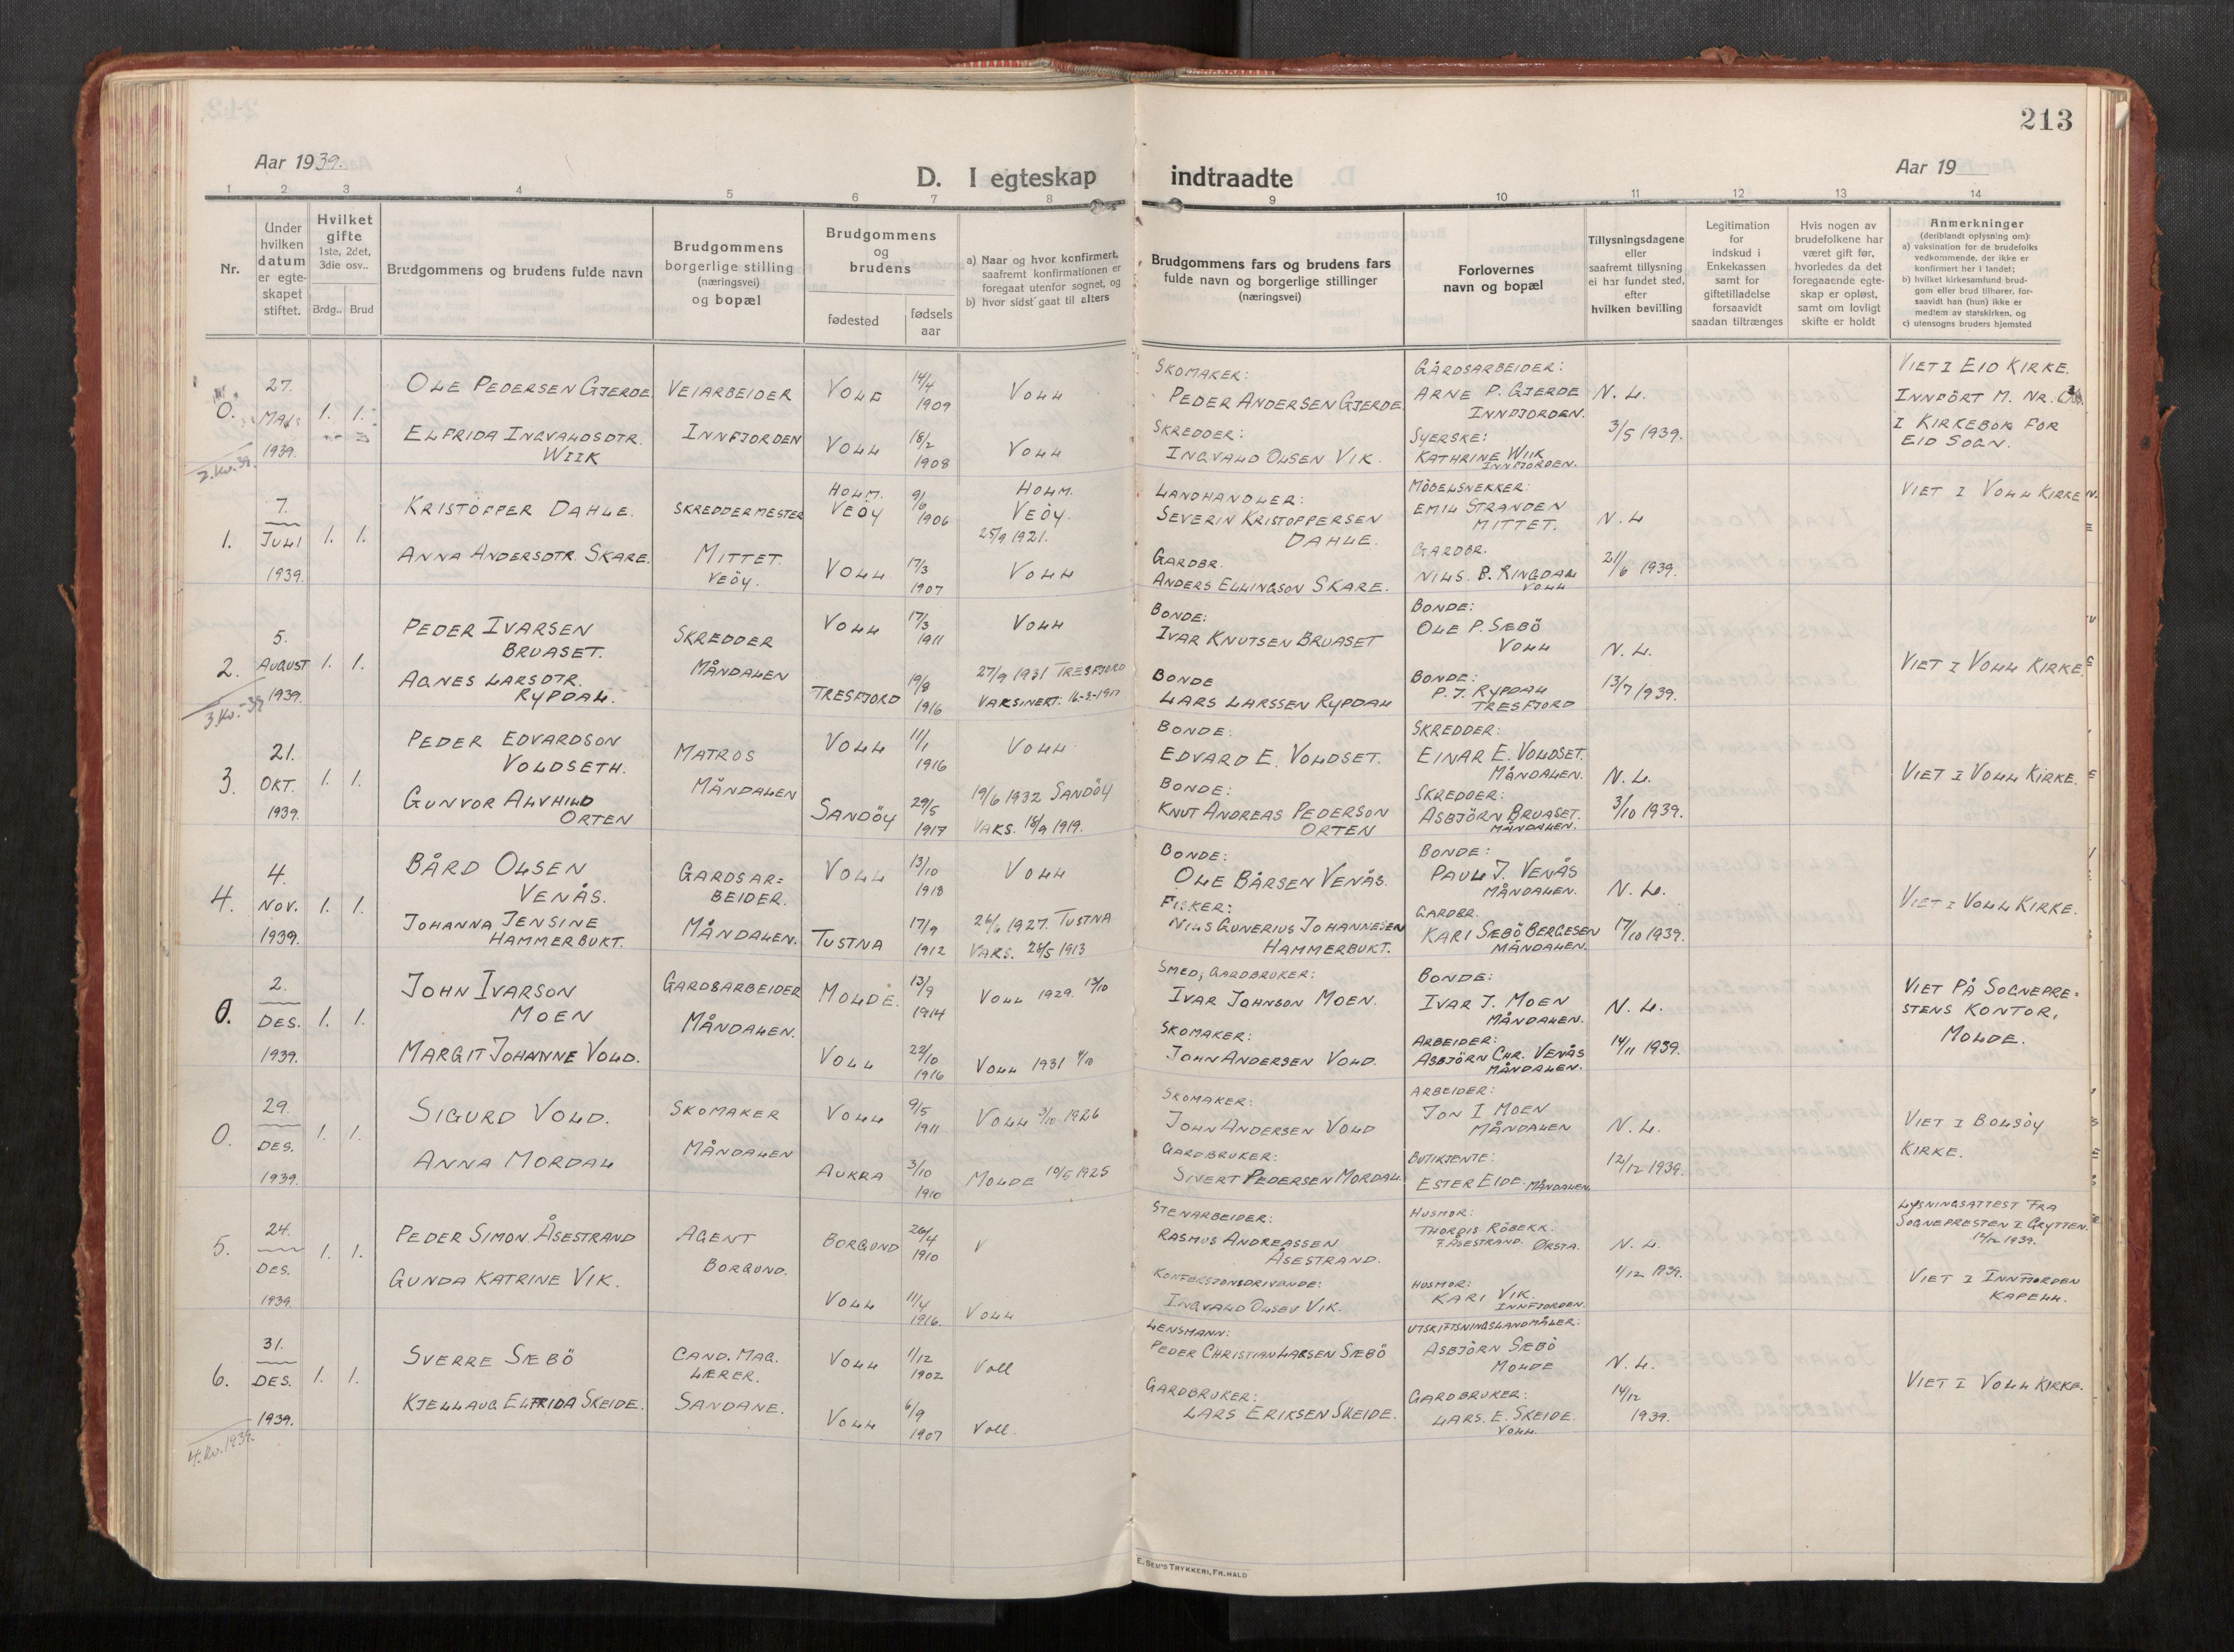 213
Aar 1939.
D. I egteskap indtraadte
Aar 19
1 2 3 4 5 6 7 8 9 10 11 12 13 14
Nr.
Under hvilken datum er egteskapet stiftet.
Hvilket gifte 1ste, 2det, 3die osv..
Brdg.. Brud
Brudgommens og brudens fulde navn
Brudgommens borgerlige stilling (næringsvei) og bopæl
Brudgommens og brudens
fødested
fødsels aar
a) Naar og hvor konfirmert, saafremt konfirmationen er foregaat utenfor sognet, og
b) hvor sidst gaat til alters
Brudgommens fars og brudens fars fulde navn og borgerlige stillinger (næringsvei)
Forlovernes navn og bopæl
Tillysningsdagene eller saafremt tillysning ei har fundet sted, efter hvilken bevilling
Legitimation for indskud i Enkekassen samt for giftetilladelse forsaavidt saadan tiltrænges
Hvis nogen av brudefolkene har været gift før, hvorledes da det foregaaende egteskap er opløst, samt om lovligt skifte er holdt
Anmerkninger (deriblandt oplysning om):
a) vaksination for de brudefolks vedkommende, der ikke er konfirmert her i landet;
b) hvilket kirkesamfund brudgom eller brud tilhører, forsaavidt han (hun) ikke er medlem av statskirken, og
c) utensogns bruders hjemsted
0.
27.
MAI
1939.
1. 1.
OLE PEDERSEN GJERDE
ELFRIDA INGVALDSDTR.
WIIK
VEIARBEIDER
INNFJORDEN
VOLL 14/4 1909 VOLL
VOLL 18/2 1908 VOLL
SKOMAKER:
PEDER ANDERSEN GJERDE
SKREDDER:
INGVALD OLSEN VIK.
GÅRDSARBEIDER:
ARNE P. GJERDE
INNFJORDEN.
SYERSKE:
KATHRINE WIIK
INNFJORDEN.
N. L.
3/5 1939.
VIET I EID KIRKE.
INNFÖRT M. NR.
I KIRKEBOK FOR
EID SOGN.
2. kv. 39.
1.
7.
JULI
1939.
1. 1.
KRISTOFFER DAHLE.
ANNA ANDERSDTR. SKARE.
SKREDDERMESTER
MITTET.
VEÖY.
HOLM.
VEÖY 9/6 1906
HOLM.
VEÖY.
25/9 1921.
VOLL 17/3 1907 VOLL
LANDHANDLER:
SEVERIN KRISTOFFERSEN
DAHLE.
GARDBR.
ANDERS ELLINGSON SKARE.
MÖBELSNEKKER:
EMIL STRANDEN
MITTET.
GARDBR.
NILS. B. RINGDAL
VOLL
N. L
21/6 1939.
VIET I VOLL KIRKE
2.
5.
AUGUST
1939.
1. 1.
PEDER IVARSEN
BRUASET.
AGNES LARSDTR.
RYPDAL.
SKREDDER
MÅNDALEN
VOLL 17/3 1911 VOLL
TRESFJORD 19/8 1916
27/9 1931 TRESFJORD
VAKSINERT: 16-3-1917
BONDE:
IVAR KNUTSEN BRUASET
BONDE
LARS LARSSEN RYPDAL
BONDE:
OLE P. SÆBÖ
VOLL
BONDE:
P. J. RYPDAL
TRESFJORD
N. L.
13/7 1939.
VIET I VOLL KIRKE.
3. kv.-39
3.
21.
OKT.
1939.
1. 1.
PEDER EDVARDSON
VOLDSETH.
GUNVOR ALVHILD
ORTEN
MATROS
MÅNDALEN
VOLL 11/1 1916 VOLL
SANDÖY 29/5 1917
19/6 1932 SANDÖY
VAKS. 18/9 1919.
BONDE:
EDVARD E. VOLDSET.
BONDE:
KNUT ANDREAS PEDERSON
ORTEN
SKREDDER:
EINAR E. VOLDSET.
MÅNDALEN.
SKREDDER:
ASBJÖRN BRUASET.
MÅNDALEN.
N. L.
3/10 1939.
VIET I VOLL KIRKE.
4.
4.
NOV.
1939.
1. 1.
BÅRD OLSEN
VENÅS.
JOHANNA JENSINE
HAMMERBUKT.
GARDSAR=
BEIDER.
MÅNDALEN.
VOLL 13/10 1918 VOLL
TUSTNA 17/9 1912
26/6 1927. TUSTNA
VAKS. 28/5 1913
BONDE:
OLE BÅRSEN VENÅS.
FISKER:
NILS GUNERIUS JOHANNESEN
HAMMERBUKT.
BONDE:
PAUL J. VENÅS
MÅNDALEN.
GARDBR.
KARI SÆBÖ BERGESEN
MÅNDALEN.
N. L.
17/10 1939.
VIET I VOLL KIRKE.
0.
2.
DES.
1939.
1. 1.
JOHN IVARSON
MOEN
MARGIT JOHANNE VOLD.
GARDSARBEIDER
MÅNDALEN.
MOLDE. 13/9 1914 VOLL 1929. 13/10
VOLL 22/10 1916 VOLL 1931 4/10
SMED, GARDBRUKER:
IVAR JOHNSON MOEN.
SKOMAKER:
JOHN ANDERSEN VOLD.
BONDE:
IVAR J. MOEN
MÅNDALEN.
ARBEIDER:
ASBJÖRN CHR. VENÅS
MÅNDALEN.
N. L.
14/11 1939.
VIET PÅ SOGNEPRE=
STENS KONTOR,
MOLDE.
0.
29.
DES.
1939.
1. 1.
SIGURD VOLD.
ANNA MORDAL
SKOMAKER
MÅNDALEN
VOLL 9/5 1911 VOLL 3/10 1926
AUKRA 3/10 1910 MOLDE 10/5 1925
SKOMAKER:
JOHN ANDERSEN VOLD
GARDBRUKER:
SIVERT PEDERSEN MORDAL
ARBEIDER:
JON I MOEN
MÅNDALEN
BUTIKJENTE:
ESTER EIDE. MÅNDALEN
N. L.
12/12 1939.
VIET I BOLSÖY
KIRKE.
5.
24.
DES.
1939.
1. 1.
PEDER SIMON ÅSESTRAND
GUNDA KATRINE VIK.
AGENT
BORGUND.
BORGUND 26/4 1910 V
VOLL 11/4 1916. VOLL
STENARBEIDER:
RASMUS ANDREASSEN
ÅSESTRAND.
KONFEKSJONSDRIVENDE:
INGVALD OLSEN VIK.
HUSMOR:
THORDIS RÖBEKK
F. ÅSESTRAND. ØRSTA.
HUSMOR:
KARI VIK.
INNFJORDEN.
N. L.
1/12 1939.
LYSNINGSATTEST FRA
SOGNEPRESTEN I GRYTTEN.
14/12 1939.
VIET I INNFJORDEN
KAPELL.
6.
31.
DES.
1939.
1. 1.
SVERRE SÆBÖ
KJELLAUG ELFRIDA SKEIDE.
CAND. MAG.
LÆRER.
SANDANE.
VOLL 1/12 1902 Voll
VOLL 6/9 1907 Voll.
LENSMANN:
PEDER CHRISTIAN LARSEN SÆBÖ
GARDBRUKER:
LARS ERIKSEN SKEIDE.
UTSKIFTNINGSLANDMÅLER:
ASBJÖRN SÆBÖ
MOLDE
GARDBRUKER:
LARS. E. SKEIDE.
VOLL.
N. L.
14/12
1939.
VIET I VOLL KIRKE.
4. kv. 1939.
E. SEM'S TRYKKERI, FR.HALD